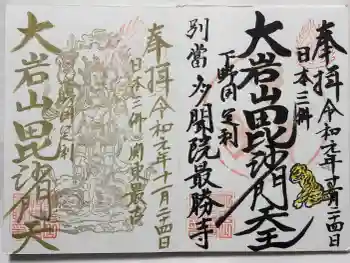 奉拝
日本三躰
令和元年十一月二四日
大岩山毘沙門天王
下野國足利
別當
多聞院最勝寺
奉拝
令和元年十一月二四日
日本三躰
関東最古
足利
大岩山毘沙門天